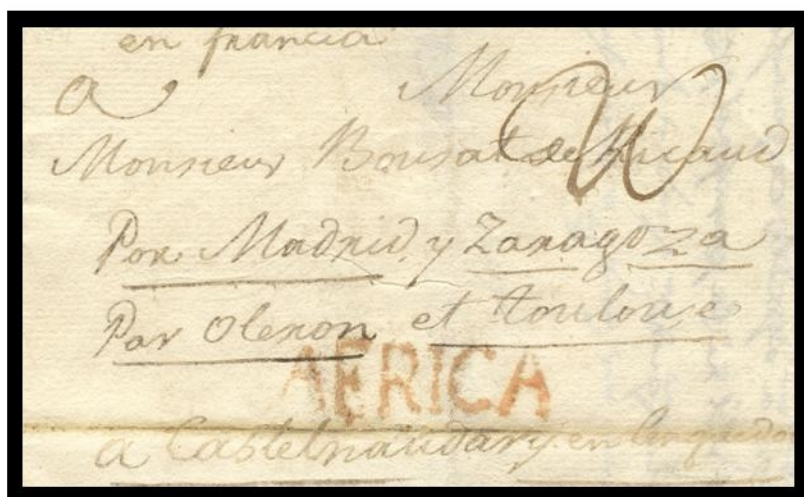 en francia
a Monsieur
Monsieur Bousat de Ricaud
Por Madrid y Zaragoza
Par oleron et toulouse
AFRICA
a Castelnaudary en languedo